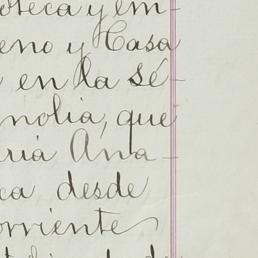 oteca y em-
eno y Casa
en la sé-
nolia, que
aria Ana-
ca desde
orriente